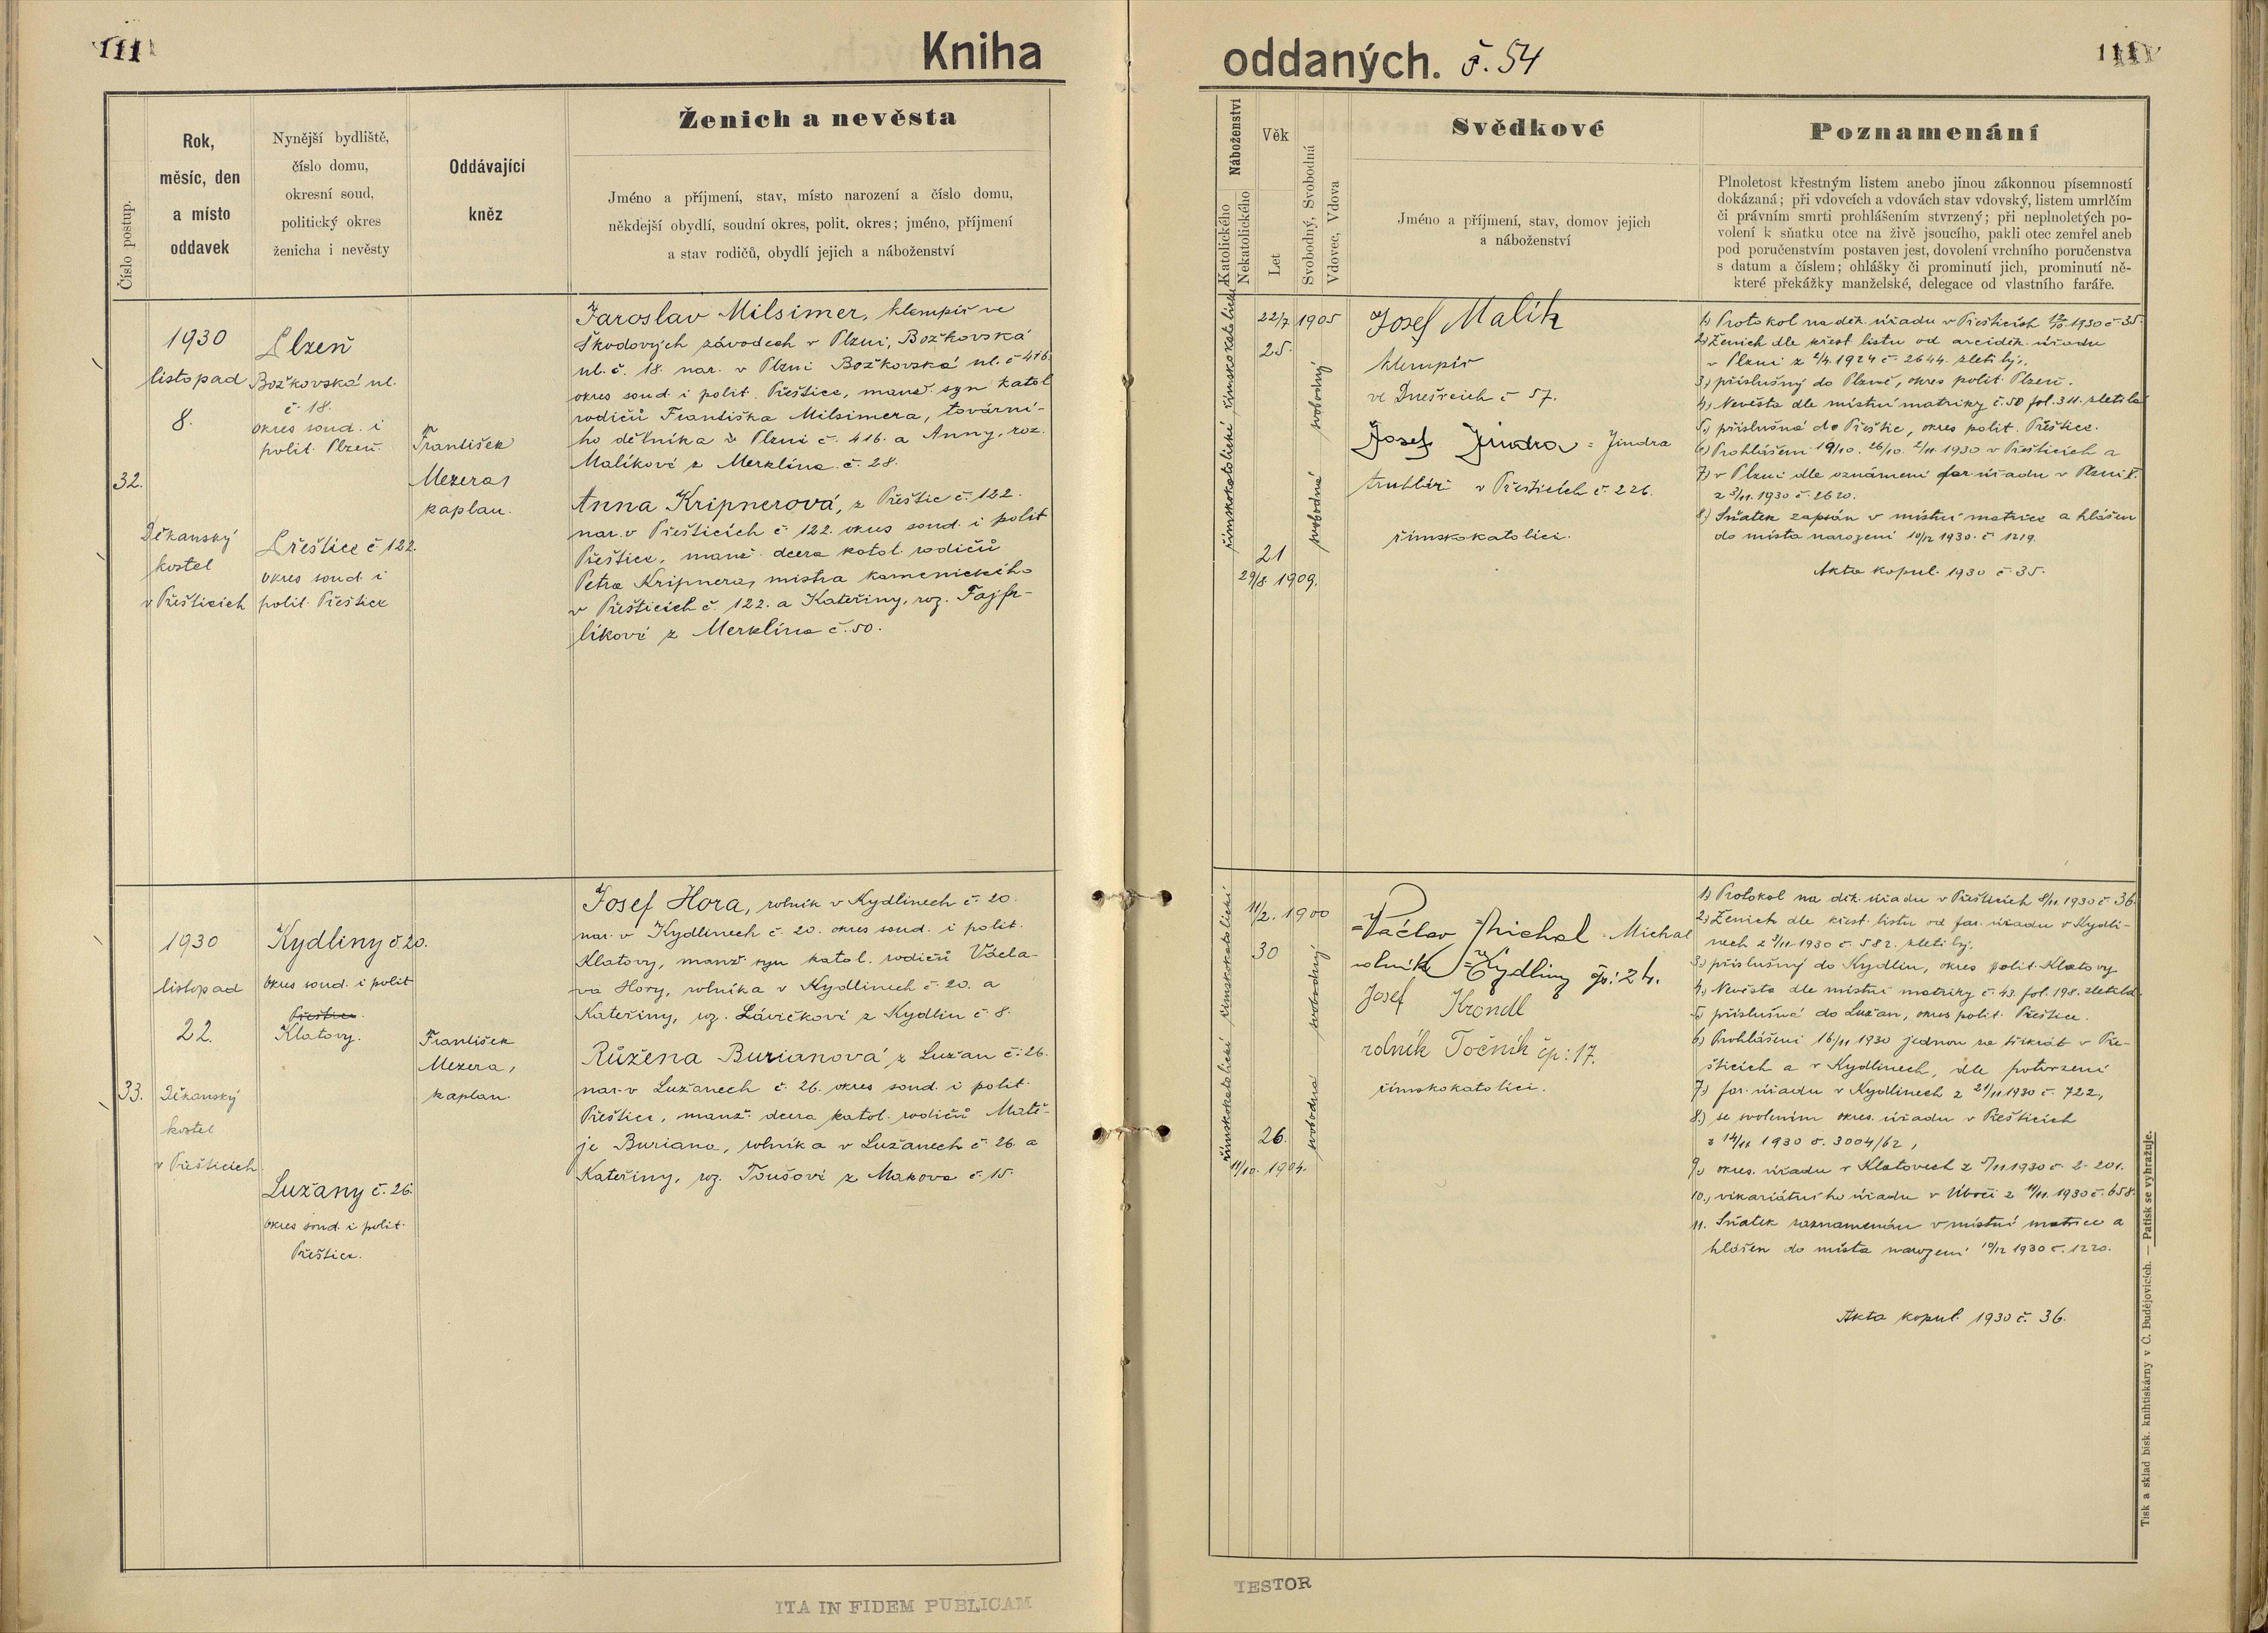 111
Kniha
Číslo postup.
Rok,
měsíc, den
a místo
oddavek
Nynější bydliště,
číslo domu,
okresní soud,
politický okres
ženicha i nevěsty
Oddávající
kněz
Ženich a nevěsta
Jméno a příjmení, stav, místo narození a číslo domu,
někdejší obydlí, soudní okres, polit. okres; jméno, příjmení
a stav rodičů, obydlí jejich a náboženství
32.
1930
listopad
8.
Děkanský
kostel
v Přešticích
Plzeň
Božkovská ul.
č. 18.
okres soud. i
polit. Plzeň.
Přeštice č 122.
okres soud. i
polit. Přeštice
František
Mezera,
kaplan.
Jaroslav Milsimer, klempíř ve
Škodových závodech v Plzni, Božkovská
ul. č. 18. nar. v Plzni Božkovská ul. č 416
okres soud. i polit. Přeštice, manž. syn katol
rodičů Františka Milsimera, tovární-
ho dělníka z Plzni č. 416. a Anny, roz.
Malíkové z Merklína č. 28.
Anna Kripnerová, z Přeštic č. 122.
nar. v Přešticích č 122. okres soud. i polit
Přeštice, manž. dcera katol. rodičů
Petra Kripnera, mistra kamenického
v Přešticích č. 122. a Kateřiny, roz. Fajfr-
líkové z Merklína č. 50.
33.
1930
listopad
22.
Děkanský
kostel
v Přešticích
Kydliny č 20.
okres soud. i polit
Přeštice.
Klatovy.
Lužany č. 26.
okres soud. i polit.
Přeštice.
František
Mezera,
kaplan.
Josef Hora, rolník v Kydlinech č. 20.
nar. v Kydlinech č. 20. okres soud. i polit.
Klatovy, manž. syn katol. rodičů Václa-
va Hory, rolníka v Kydlinech č. 20. a
Kateřiny, roz. Lávičkové z Kydlin č 8.
Růžena Burianová z Lužan č. 26.
nar. v Lužanech č. 26. okres soud. i polit.
Přeštice, manž. dcera katol. rodičů Matě-
je Buriana, rolníka v Lužanech č. 26 a
Kateřiny, roz. Toušové z Makova č. 15.
ITA IN FIDEM PUBLICAM
oddaných. č. 54
111
Náboženství
Katolického
Nekatolického
Věk
Let
Svobodný, Svobodná
Vdovec, Vdova
Svědkové
Jméno a příjmení, stav, domov jejich
a náboženství
Poznamenání
Plnoletost křestným listem anebo jinou zákonnou písemností
dokázaná; při vdovcích a vdovách stav vdovský, listem umrlčím
či právním smrti prohlášením stvrzený; při neplnoletých po-
volení k sňatku otce na živě jsoucího, pakli otec zemřel aneb
pod poručenstvím postaven jest, dovolení vrchního poručenstva
s datum a číslem; ohlášky či prominutí jich, prominutí ně-
které překážky manželské, delegace od vlastního faráře.
římskokatolické římskokatolické
22/7 1905
25.
21
29/8. 1909.
svobodná svobodný
Josef Malík
klempíř
ve Dnešicích č 57.
Josef Jindra = Jindra
truhlář v Přešticích č. 226.
římskokatolíci.
1) Protokol na děk. úřadu v Přešticích 12/10 1930 č. 35.
2) Ženich dle křest listu od arciděk. úřadu
v Plzni z 2/4. 1924 č. 2644. zletilý,
3.) příslušný do Plzně, okres polit. Plzeň.
4.) Nevěsta dle místní matriky č. 50 fol. 311. zletilá
5.) příslušná do Přeštic, okres polit. Přeštice.
6.) Prohlášeni 19/10. 26/10. 2/11 1930 v Přešticích a
7.) v Plzni dle oznámení far úřadu v Plzni V.
z 3/11. 1930 č. 2620.
8.) Sňatek zapsán v místní matrice a hlášen
do místa narození 10/12 1930. č 1219.
Akta kopul. 1930 č. 35.
římskokatolické římskokatolické
11/2. 1900
30
26.
11/10. 1904.
svobodná svobodný
=Václav Michal = Michal
rolník = Kydliny čp: 24.
Josef Krondl
rolník Točník čp: 17.
římskokatolíci.
1) Protokol na děk. úřadu v Přešticích 8/11. 1930 č 36.
2.) Ženich dle křest. listu od far. úřadu v Kydli-
nech z 3/11 1930 č. 582. zletilý.
3.) příslušný do Kydlin, okres polit. Klatovy
4.) Nevěsta dle místní matriky č. 43. fol. 198. zletilá
5.) příslušná do Lužan, okres polit. Přeštice.
6.) Prohlášeni 16/11 1930 jednou za třikrát v Pře-
šticích a v Kydlinech, dle potvrzení
7.) far. úřadu v Kydlinech z 21/11 1930 č. 722,
8.) se svolením okres. úřadu v Přešticích
z 14/11 1930 č. 3004/62,
9.) okres. úřadu v Klatovech z 5/11 1930 č. 2-201.
10.) vikariátního úřadu v Úboči z 11/11. 1930 č. 658.
11. Sňatek zaznamenán v místní matrice a
hlášen do místa narození 10/12 1930 č. 1220.
Akta kopul. 1930 č. 36.
Tisk a sklad bisk. knihtiskárny v Č. Budějovicích. — Patisk se vyhražuje.
TESTOR